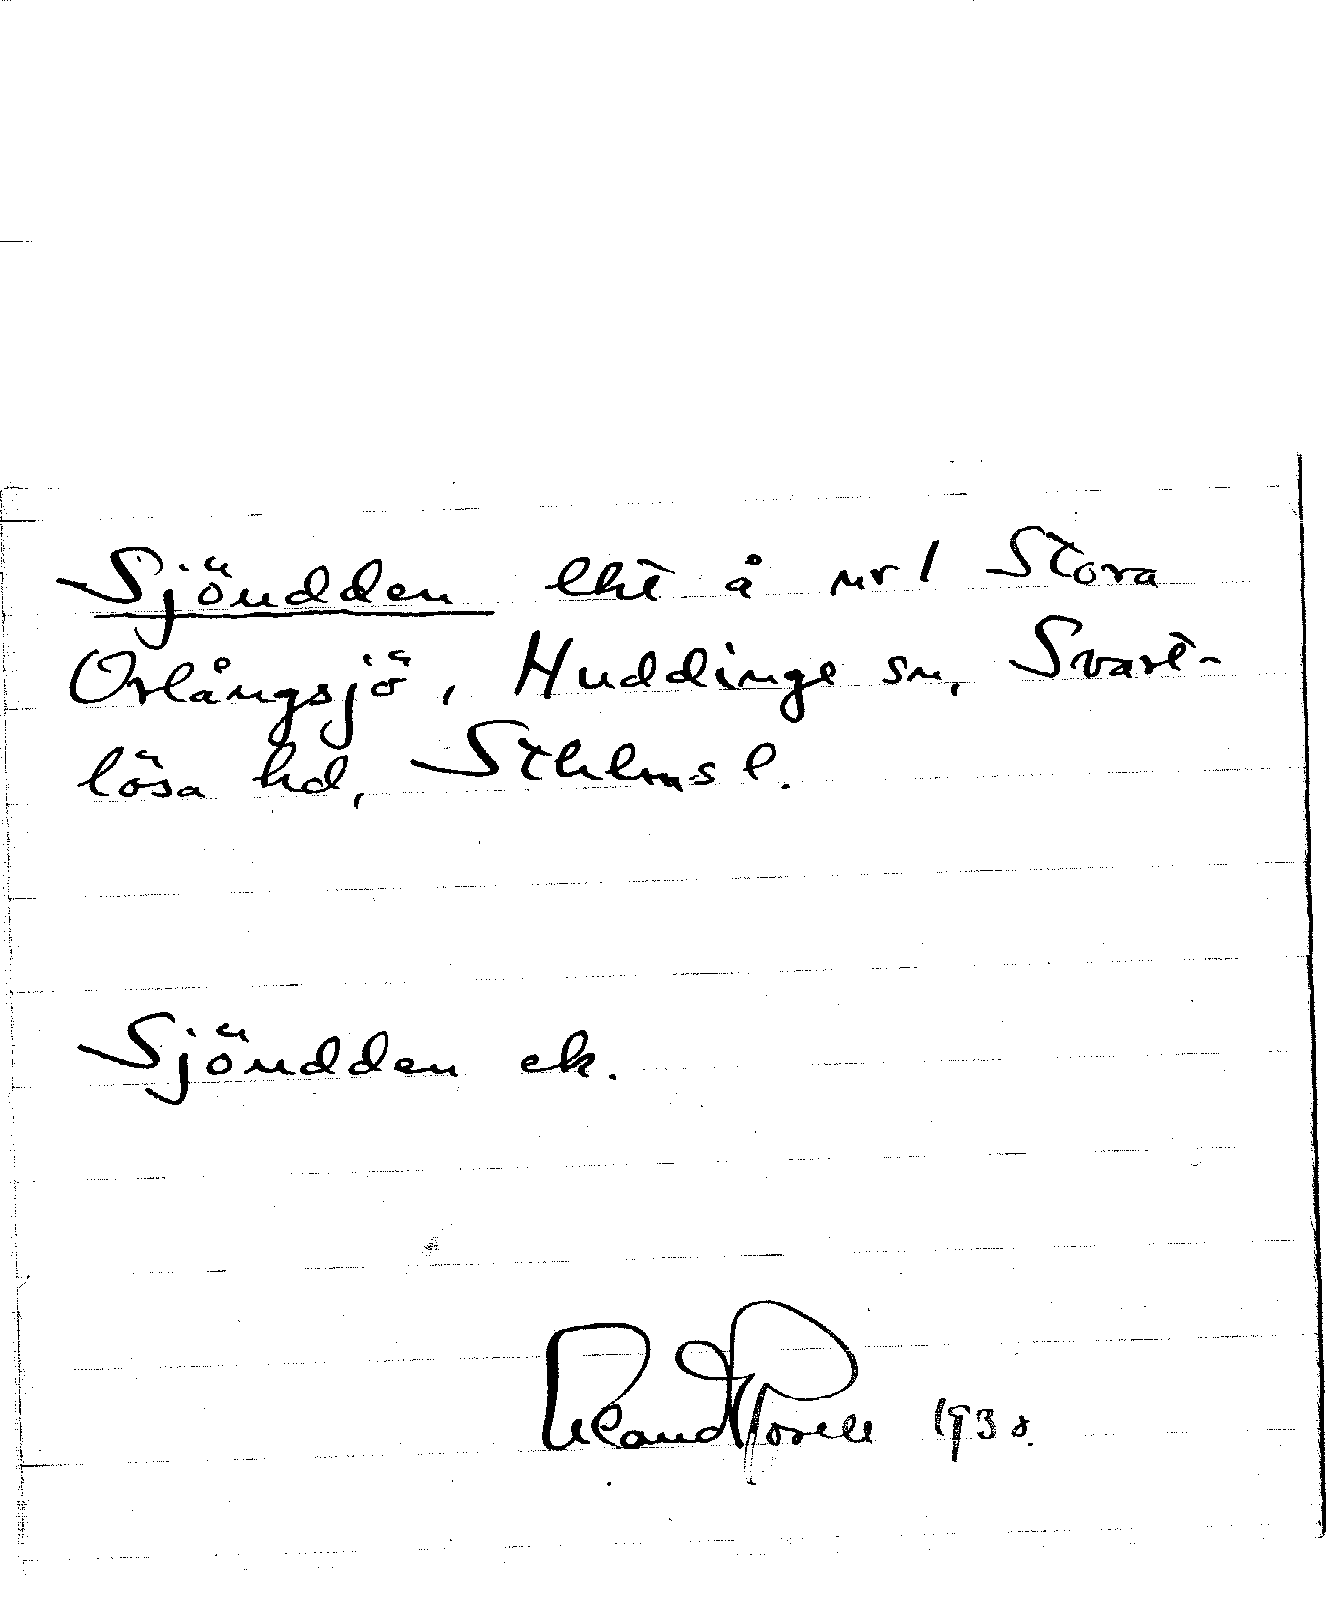 Sjöudden lht å nr 1 Stora
Orlångsjö, Huddinge sn, Svart-
lösa hd, Sthlms l.
Sjöudden ek.
1938.